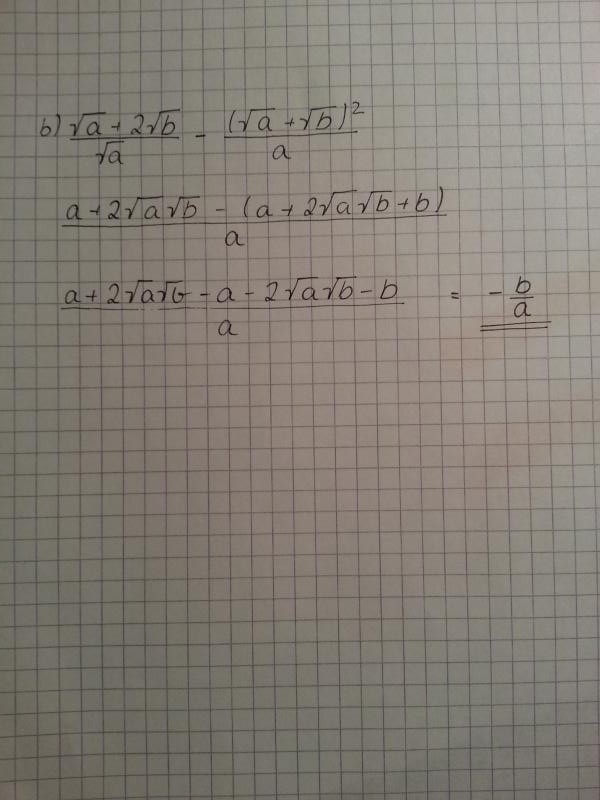 b) (√a + 2√b)/√a - (√a + √b)²/a
(a + 2√a√b - (a + 2√a√b + b))/a
(a + 2√a√b - a - 2√a√b - b)/a = -b/a